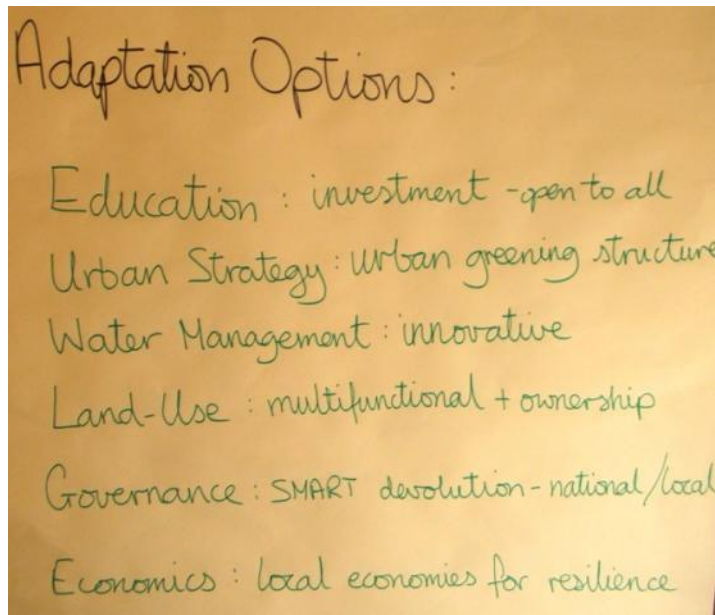 Adaptation Options:
Education : investment - open to all
Urban Strategy : urban greening structure
Water Management : innovative
Land-Use : multifunctional + ownership
Governance : SMART devolution - national/local
Economics : local economies for resilience